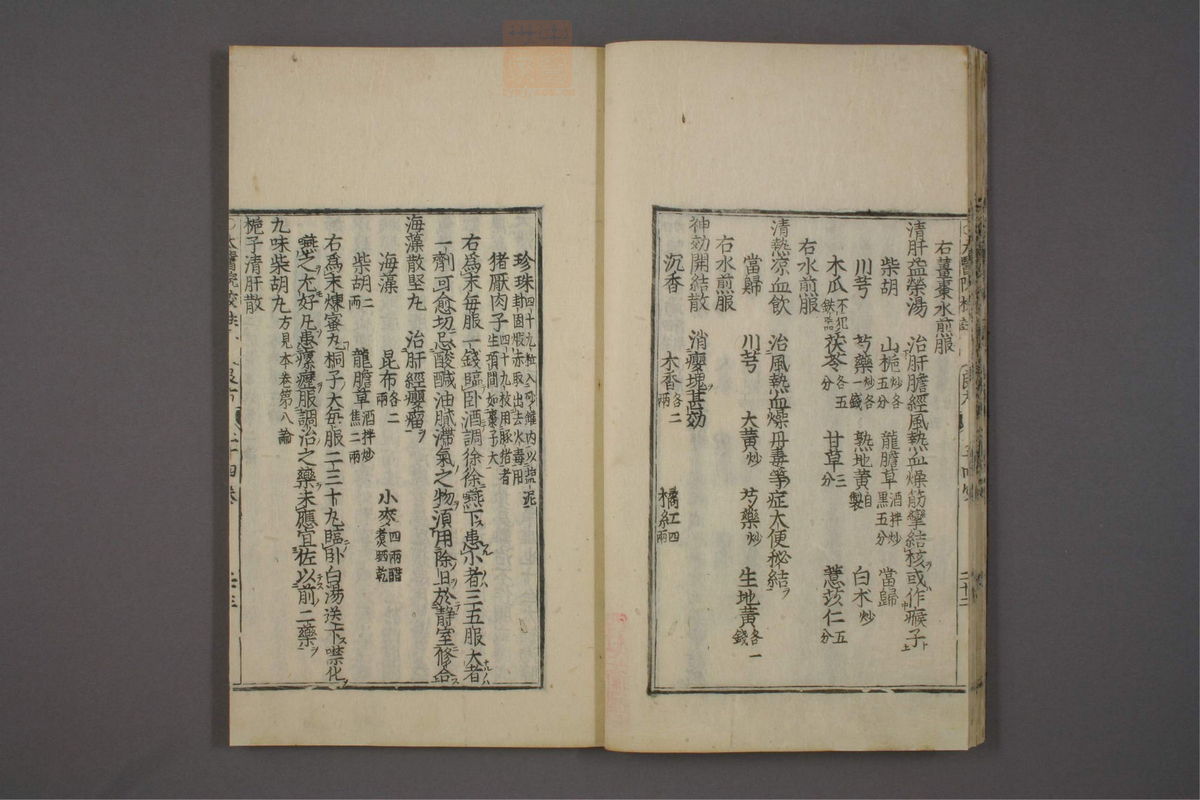 右薑棗水煎服
清肝益榮湯　治肝膽經風熱血燥筋攣結核或作瘊子
柴胡　山梔炒各五分　龍膽草酒拌炒黑五分　當歸
川芎　芍藥炒各一錢　熟地黃自製　白朮炒
木瓜不犯鉄器　茯苓各五分　甘草三分　薏苡仁五分
右水煎服
清熱凉血飲　治風熱血燥丹毒等症大便秘結
當歸　川芎　大黃炒　芍藥炒　生地黃各一錢
右水煎服
神効開結散　消癭塊甚効
沉香　木香各二兩　橘紅四兩
珍珠四十九粒入砂鑵內以盐泥封固煅赤取出去火毒用
猪厭肉子四十九枚用豚猪者生項間如棗子大
右爲末每服一錢臨卧酒調徐徐嚥下患小者三五服大者
一劑可愈切忌酸鹹油膩滯氣之物須用除日於靜室修合
海藻散堅丸　治肝經癭瘤
海藻　昆布各二兩　小麥四兩醋煮晒乾
柴胡二兩　龍膽草酒拌炒焦二兩
右爲末煉蜜丸桐子大每服二三十丸臨卧白湯送下噙化
嚥之尤好凡患瘰癧服調治之藥未應宜佐以前二藥
九味柴胡丸方見本卷第八論
梔子清肝散